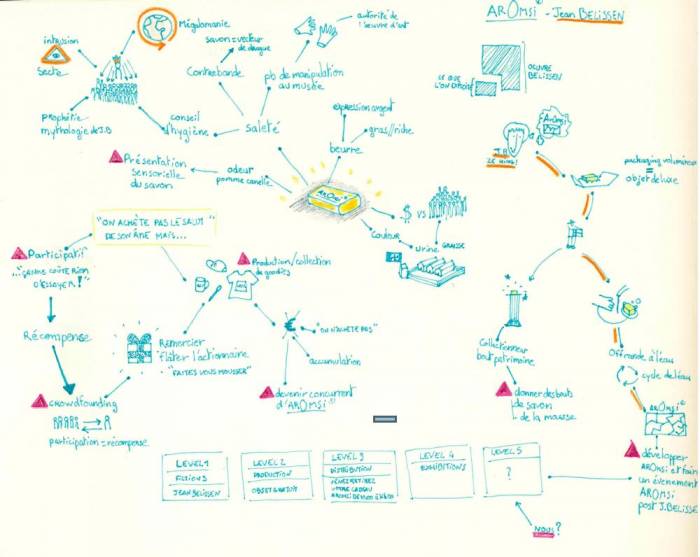 AROMSI® - Jean BELISSEN
intrusion
secte
Mégalomanie
savon = vecteur
de drogue
Contrebande
autorité de
l'œuvre d'art
pb de manipulation
au musée
prophétie
mythologie de J.B
conseil
d'hygiène
saleté
expression argent
gras//riche
beurre
Présentation
sensorielle
du savon
odeur
pomme canelle
AROMSI
couleur
$ VS
urine
GRAISSE
ŒUVRE
BELISSEN
J.B
packaging volumineux
=
objet de luxe
"ON ACHÈTE PAS LE SALUT
DE SON ÂME MAIS..."
Participatif
D'ESSAYER!"
Récompense
crowdfounding
participation = récompense
Production/collection
de goodies
Remercier
flâter l'actionnaire
"FAITES VOUS MOUSSER"
€
"ON N'ACHÈTE PAS"
accumulation
devenir concurrent
d'AROMSI®
Collectionneur
bout patrimoine
donner des bouts
de savon
de la mousse
Offrande à l'eau
cycle de l'eau
AROMSI®
développer
AROMSI et faire
un évènement
AROMSI
post J.BELISSE
LEVEL 1
FICTIONS
JEAN BELISSEN
LEVEL 2
PRODUCTION
OBJET GRATUIT
LEVEL 3
DISTRIBUTION
LEVEL 4
EXHIBITIONS
LEVEL 5
?
NOUS?